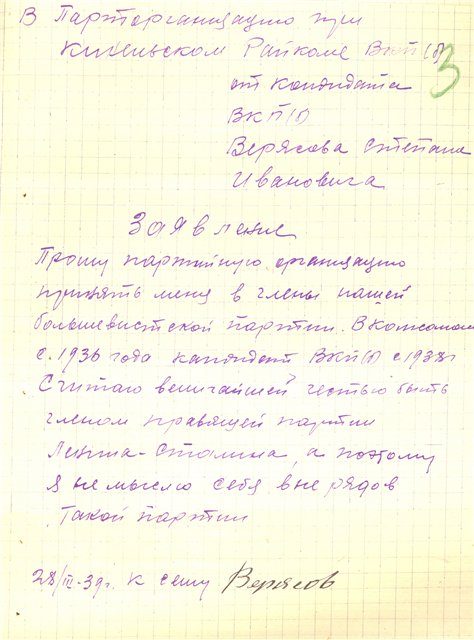 В Парторганизацию при
Кинельском Райкоме ВКП(б)
3
от кандидата
ВКП(б)
Верясова Степана
Ивановича
Заявление
Прошу партийную организацию
принять меня в члены нашей
большевистской партии. В комсомоле
с 1936 года кандидат ВКП(б) с 1938г
Считаю величайшей честью быть
членом правящей партии
Ленина-Сталина, а поэтому
я не мыслю себя вне рядов
такой партии
28/III-39г. К сему Верясов